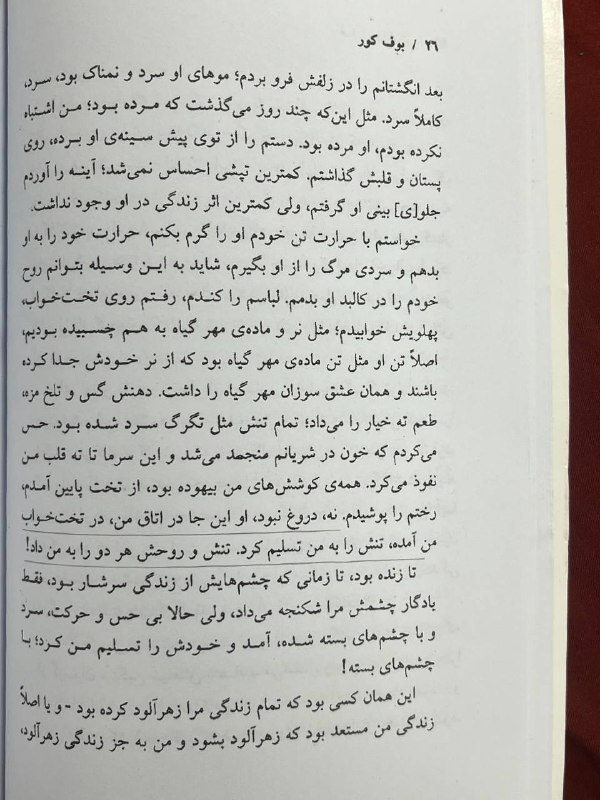 ۲۶ / بوف کور
بعد انگشتانم را در زلفش فرو بردم؛ موهای او سرد و نمناک بود، سرد،
کاملاً سرد. مثل این‌که چند روز می‌گذشت که مرده بود؛ من اشتباه
نکرده بودم، او مرده بود. دستم را از توی پیش سینه‌ی او برده، روی
پستان و قلبش گذاشتم. کمترین تپشی احساس نمی‌شد؛ آینه را آوردم
جلو[ی] بینی او گرفتم، ولی کمترین اثر زندگی در او وجود نداشت.
خواستم با حرارت تن خودم او را گرم بکنم، حرارت خود را به او
بدهم و سردی مرگ را از او بگیرم، شاید به این وسیله بتوانم روح
خودم را در کالبد او بدمم. لباسم را کندم، رفتم روی تخت‌خواب،
پهلویش خوابیدم؛ مثل نر و ماده‌ی مهر گیاه به هم چسبیده بودیم،
اصلاً تن او مثل تن ماده‌ی مهر گیاه بود که از نر خودش جدا کرده
باشند و همان عشق سوزان مهر گیاه را داشت. دهنش گس و تلخ مزه،
طعم ته خیار را می‌داد؛ تمام تنش مثل تگرگ سرد شده بود. حس
می‌کردم که خون در شریانم منجمد می‌شد و این سرما تا ته قلب من
نفوذ می‌کرد. همه‌ی کوشش‌های من بیهوده بود، از تخت پایین آمدم،
رختم را پوشیدم. نه، دروغ نبود، او این جا در اتاق من، در تخت‌خواب
من آمده، تنش را به من تسلیم کرد. تنش و روحش هر دو را به من داد!
تا زنده بود، تا زمانی که چشم‌هایش از زندگی سرشار بود، فقط
یادگار چشمش مرا شکنجه می‌داد، ولی حالا بی حس و حرکت، سرد
و با چشم‌های بسته شده، آمد و خودش را تسلیم من کرد؛ با
چشم‌های بسته!
این همان کسی بود که تمام زندگی مرا زهرآلود کرده بود - و یا اصلاً
زندگی من مستعد بود که زهرآلود بشود و من به جز زندگی زهرآلود،